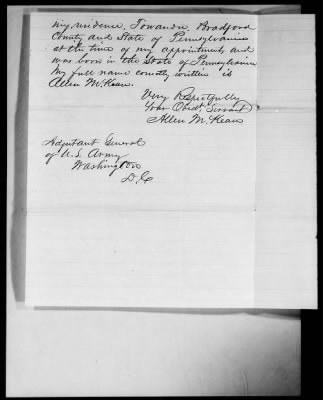 my residence, Towanda, Bradford
County and State of Pennsylvania
at the time of my appointment, and
was born in the State of Pennsylvania
My full name correctly written is
Allen McKean.
Very Respectfully
Your Obdt Servant
Allen McKean
Adjutant General
of U.S. Army
Washington
D.C.